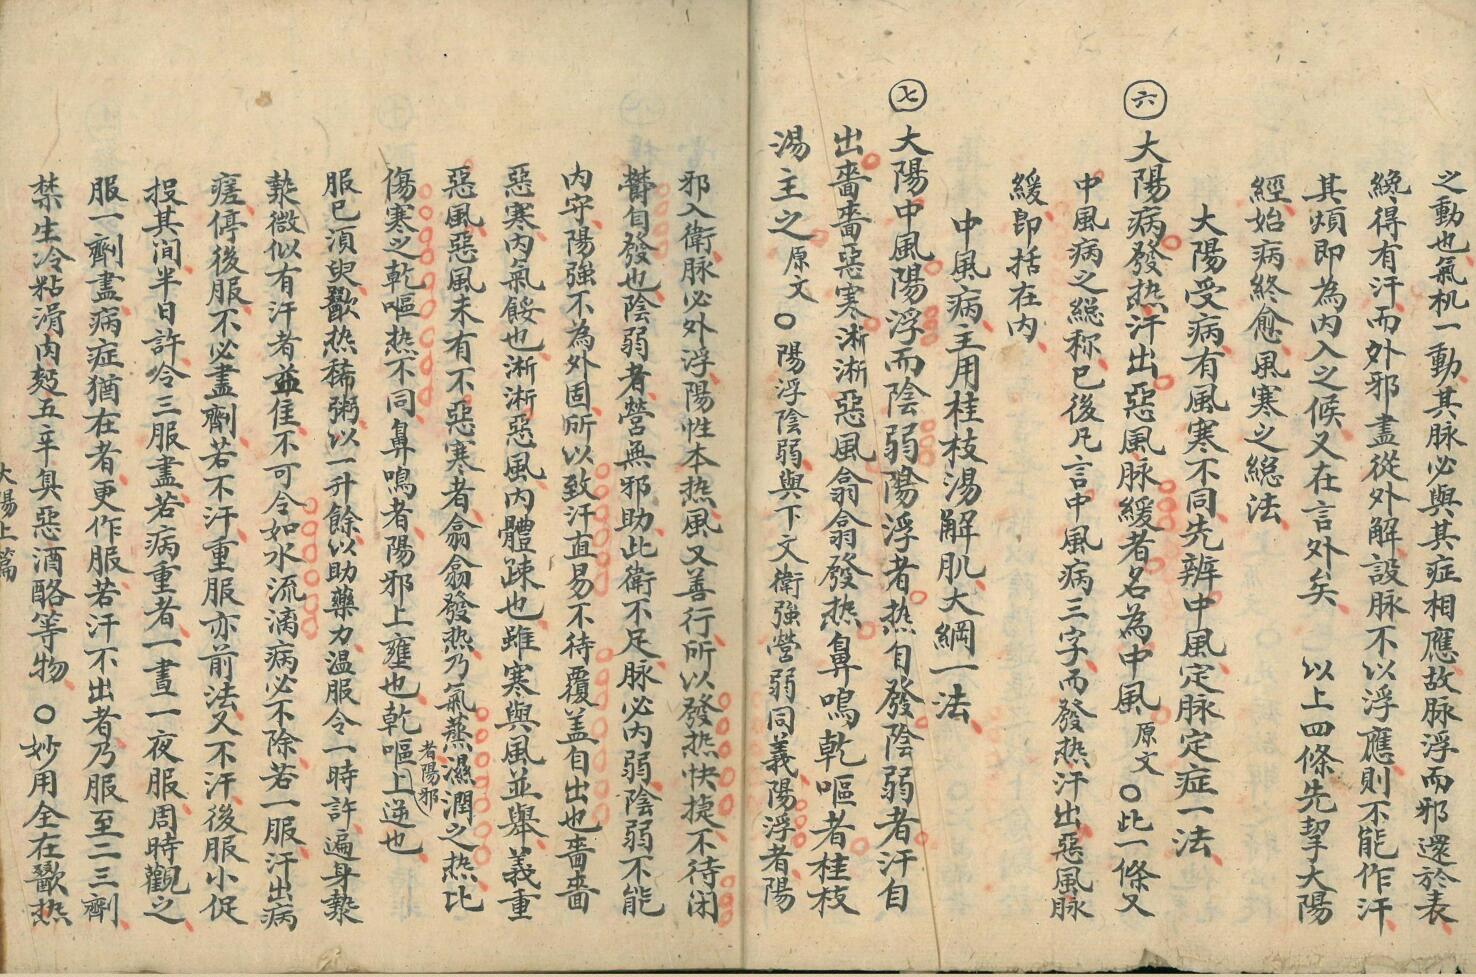 之動也氣机一動其脉必與其症相應故脉浮而邪還於表
纔得有汗而外邪盡從外解設脉不以浮應則不能作汗
其煩即為内入之候又在言外矣　以上四條先挈大陽
經始病終愈風寒之総法
大陽受病有風寒不同先辨中風定脉定症一法
六 大陽病發热汗出惡風脉緩者名為中風原文〇此一條又
中風病之総称已後凡言中風病三字而發热汗出惡風脉
緩即括在内
中風病主用桂枝湯解肌大綱一法
七 大陽中風陽浮而陰弱陽浮者热自發陰弱者汗自
出嗇嗇惡寒淅淅惡風翕翕發热鼻鳴乾嘔者桂枝
湯主之原文〇陽浮陰弱與下文衛強營弱同義陽浮者陽
邪入衛脉必外浮陽性本热風又善行所以發热快捷不待闭
欝自發也陰弱者營無邪助此衛不足脉必内弱陰弱不能
内守陽強不為外固所以致汗直易不待覆盖自出也嗇嗇
惡寒内氣餒也淅淅惡風内體疎也雖寒與風並舉義重
惡風惡風未有不惡寒者翕翕發热乃氣蒸濕潤之热比
傷寒之乾嘔热不同鼻鳴者陽邪上壅也乾嘔上逆也
者陽邪
服已湏臾歠热稀粥以一升餘以助藥力温服令一時許遍身漐
漐微似有汗者益佳不可令如水流漓病必不除若一服汗出病
瘥停後服不必盡劑若不汗重服亦前法又不汗後服小促
投其间半日許令三服盡若病重者一晝一夜服周時觀之
服一劑盡病症猶在者更作服若汗不出者乃服至二三劑
禁生冷粘滑肉麪五辛臭惡酒酪等物　〇妙用全在歠热
大陽上篇